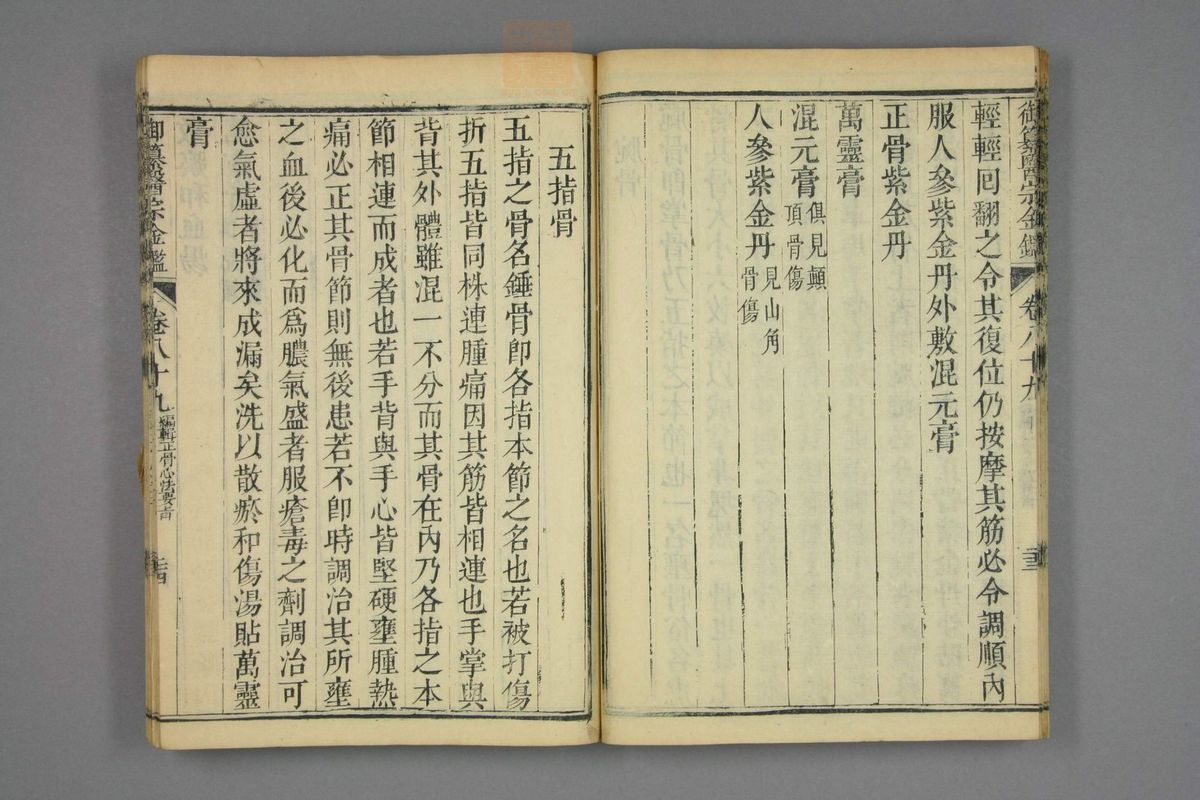 御纂醫宗金鑑 卷八十九
輕輕回翻之令其復位仍按摩其筋必令調順內
服人參紫金丹外敷混元膏
正骨紫金丹
萬靈膏
混元膏俱見顛
頂骨傷
人參紫金丹見山角
骨傷
五指骨
五指之骨名錘骨卽各指本節之名也若被打傷
折五指皆同株連腫痛因其筋皆相連也手掌與
背其外體雖混一不分而其骨在內乃各指之本
節相連而成者也若手背與手心皆堅硬壅腫熱
痛必正其骨節則無後患若不卽時調治其所壅
之血後必化而爲膿氣盛者服瘡毒之劑調治可
愈氣虛者將來成漏矣洗以散瘀和傷湯貼萬靈
膏
御纂醫宗金鑑 卷八十九 編輯正骨心法要旨